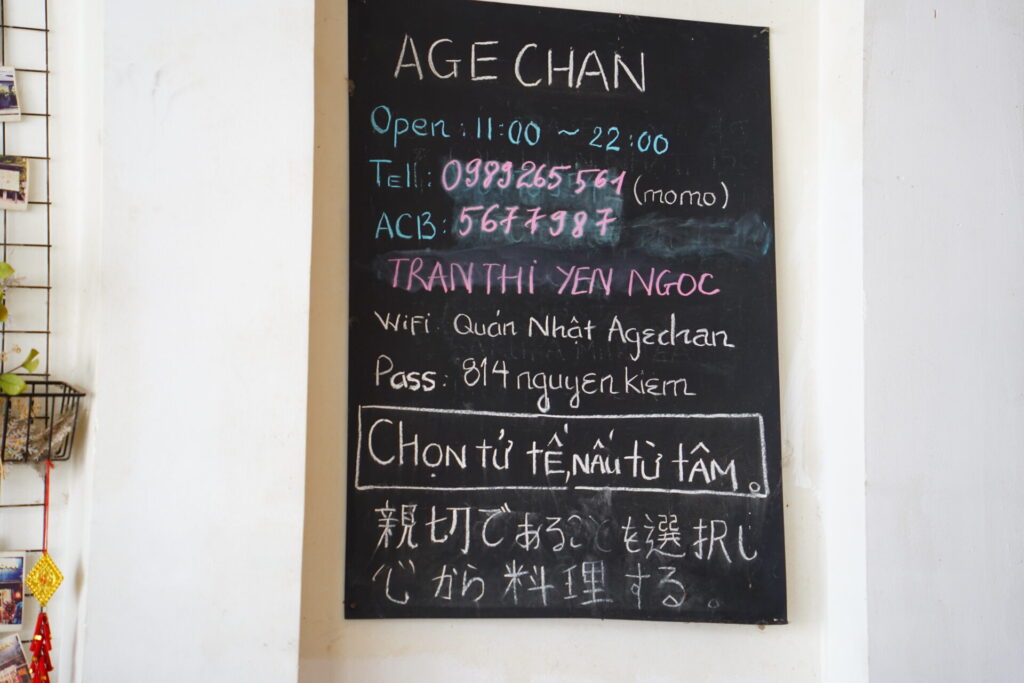 AGE CHAN
Open : 11:00 ~ 22:00
Tell : 0989265561 (momo)
ACB : 5677987
TRAN THI YEN NGOC
WiFi Quán Nhật Agechan
Pass : 814 nguyen kiem
CHỌN TỬ TẾ, NẤU TỪ TÂM.
親切であることを選択し
心から料理する。